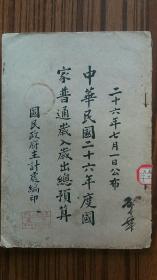 二十六年七月一日公布
中華民國二十六年度國
家普通歲入歲出總預算
國民政府主計處編印